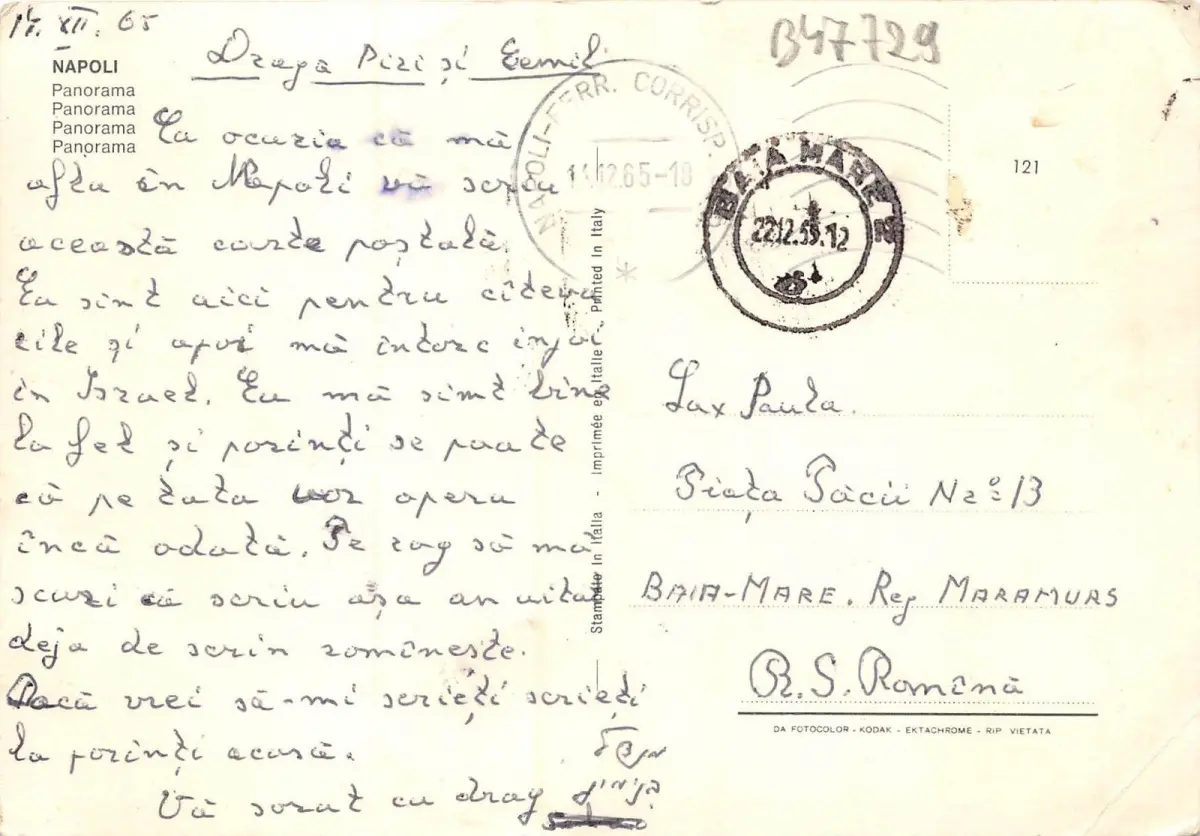 14. XII. 65
B47729
NAPOLI
Panorama
Panorama
Panorama
Panorama
Draga Piri și Eemil
La ocazia că mă
aflu în Napoli vă scriu
această carte poștală
Eu sînt aici pentru cîteva
zile și apoi mă întorc
in Israel. Eu mă simt bine
la fel și părinți se poate
că pe tata vor opera
încă odată. Te rog să mă
scuzi că scriu așa am uitat
deja de scrin romînește.
Dacă vrei să-mi scrieți scrieți
la părinți acasă.
Vă sărut cu drag
בנימין
NAPOLI-FERR. CORRISP.
12.65-18
BAIA MARE
22.12.65.12
121
Stampato in Italia - Imprimée en Italie - Printed in Italy
Lax Paula.
Piața Păcii Nr 13
BAIA-MARE. Reg MARAMURS
R.S. Romînă
DA FOTOCOLOR - KODAK - EKTACHROME - RIP VIETATA